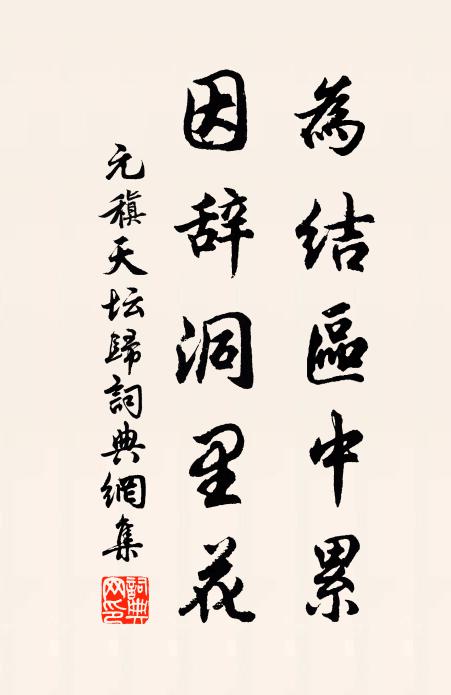 為結區中累
因辞洞里花
元稹天坛歸詞典網集
詞典網印